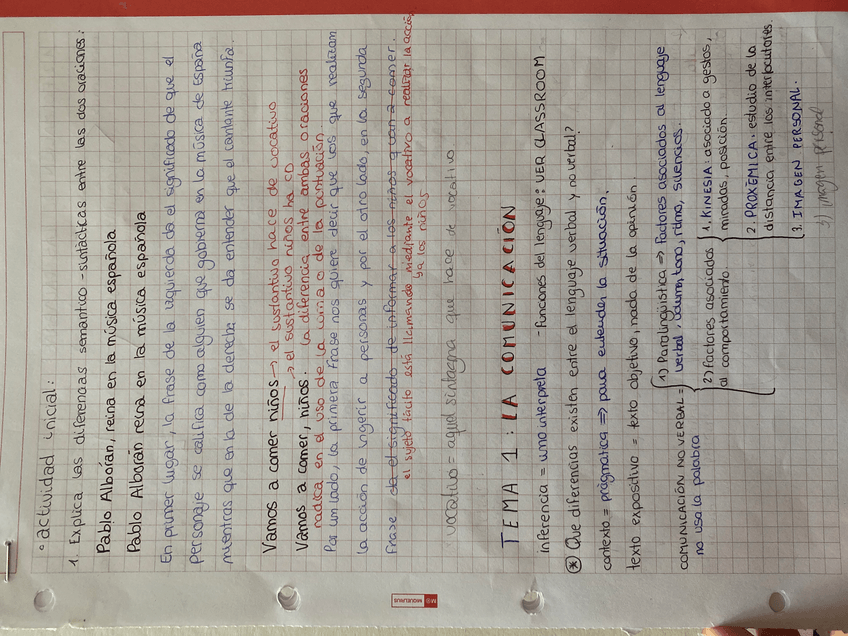 • actividad inicial:
1. Explica las diferencias semántico-sintácticas entre las dos oraciones:
Pablo Alborán, reina en la música española
Pablo Alborán reina en la música española
En primer lugar, la frase de la izquierda da el significado de que el
personaje se califica como alguien que gobierna en la música de España
mientras que en la de la derecha se da entender que el cantante triunfa.
Vamos a comer niños → el sustantivo hace de vocativo
→ el sustantivo niños ha CD
Vamos a comer, niños. La diferencia entre ambas oraciones
radica en el uso de la coma o de la puntuación
Por un lado, la primera frase nos quiere decir que los que realizam
la acción de ingerir a personas y por el otro lado, en la segunda
frase da el significado de informar a los niños q van a comer.
el sujeto tácito está llamando mediante el vocativo a realizar la acción
ya los niños
vocativo = aquel sintagma que hace de vocativo
TEMA 1: LA COMUNICACIÓN
inferencia = uno interpreta - funciones del lenguaje: VER CLASSROOM
* Que diferencias existen entre el lenguaje verbal y no verbal?
contexto = prágmatica => para entender la situación.
texto expositivo = texto objetivo, nada de la opinión.
COMUNICACIÓN NO VERBAL =
no usa la palabra
1) Paralingüística => factores asociados al lenguaje
verbal, volumen, tono, ritmo, silencios.
2) factores asociados
al comportamiento.
1. KINESIA: asociado a gestos,
miradas, posición.
2. PROXÉMICA: estudio de la
distancia entre los interlocutores.
3. IMAGEN PERSONAL.
3) imagen personal
MIQUELRIUS